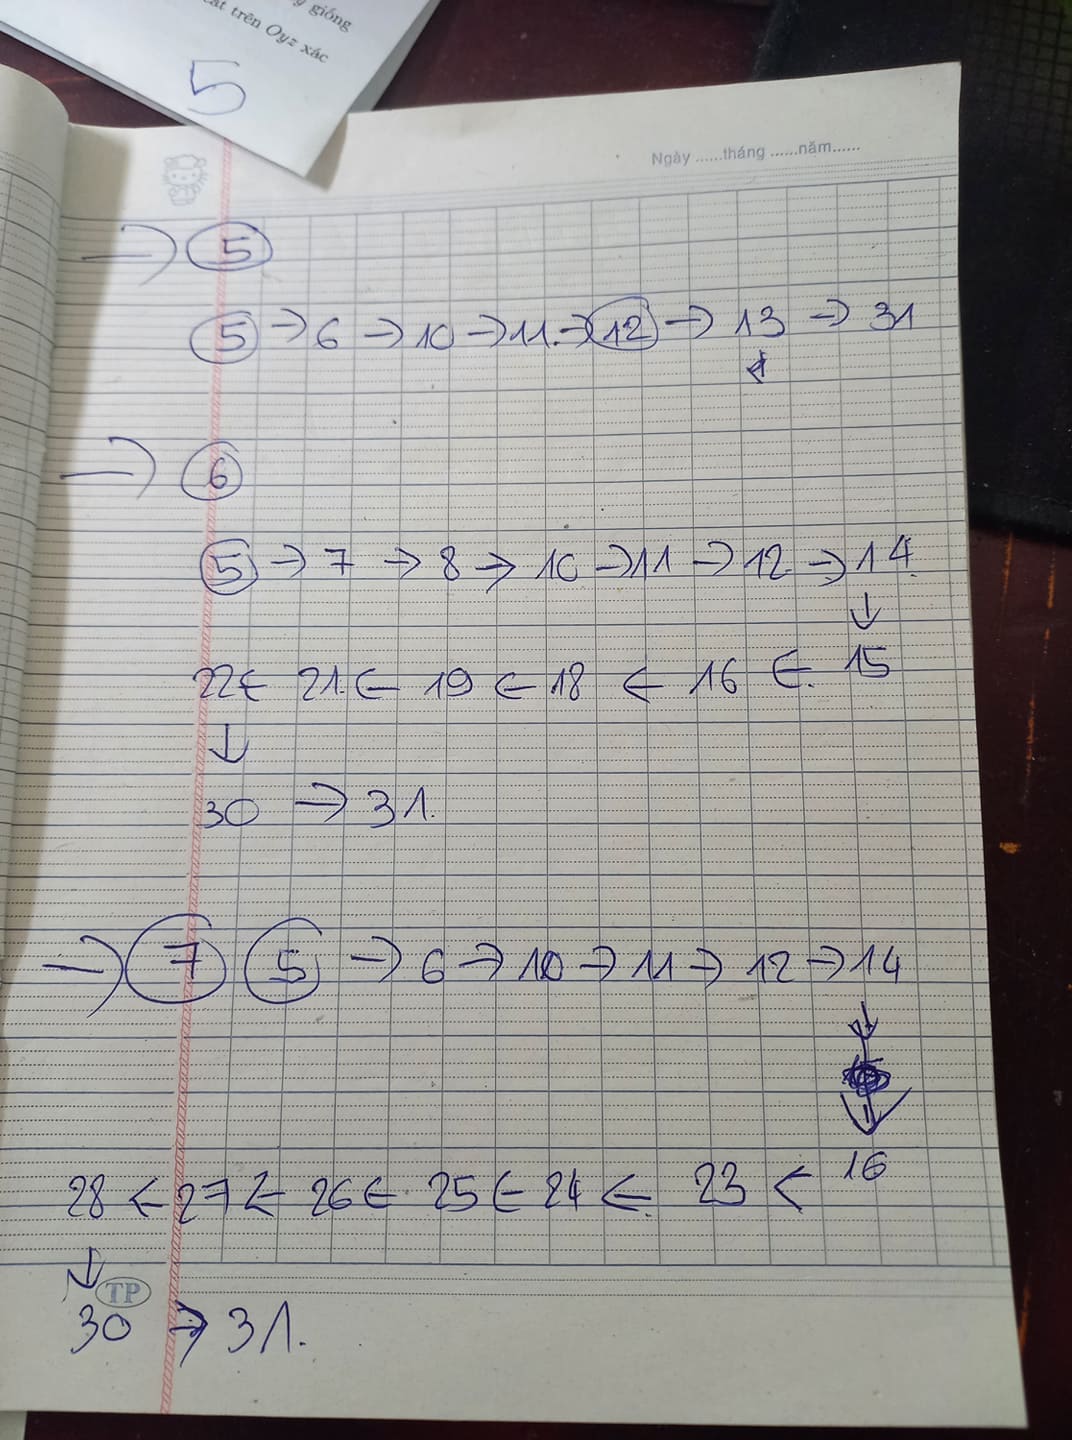 ỹ giống
cắt trên Oyz xác
5
Ngày ......tháng ......năm......
→ 5
5 → 6 → 10 → 11 → 12 → 13 → 31
→ 6
5 → 7 → 8 → 10 → 11 → 12 → 14
↓
22 ← 21 ← 19 ← 18 ← 16 ← 15
↓
30 → 31.
→ 7 5 → 6 → 10 → 11 → 12 → 14
↓
↓
28 ← 27 ← 26 ← 25 ← 24 ← 23 ← 16
↓
TP
30 → 31.